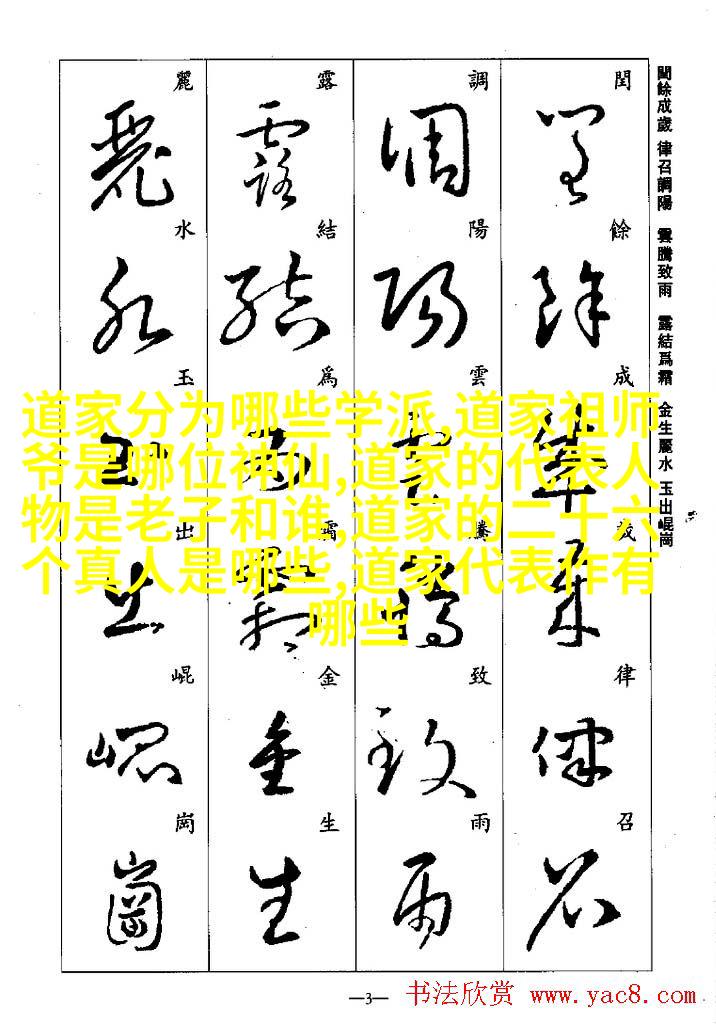 閏餘成歲 律召調陽 雲騰致雨 露結爲霜 金生麗水 玉出崐崗
閏餘成歲律召
閏餘成歲律召
調陽雲騰致雨
調陽雲騰致雨
露結爲霜金生
露結爲霜金生
麗水玉出崐崗
麗水玉出崐崗
道家分为哪些学派,道家祖师
爷是哪位神仙,道家的代表人
物是老子和谁,道家的二十六
个真人是哪些,道家代表作有
哪些
—3—
书法欣赏 www.yac8.com